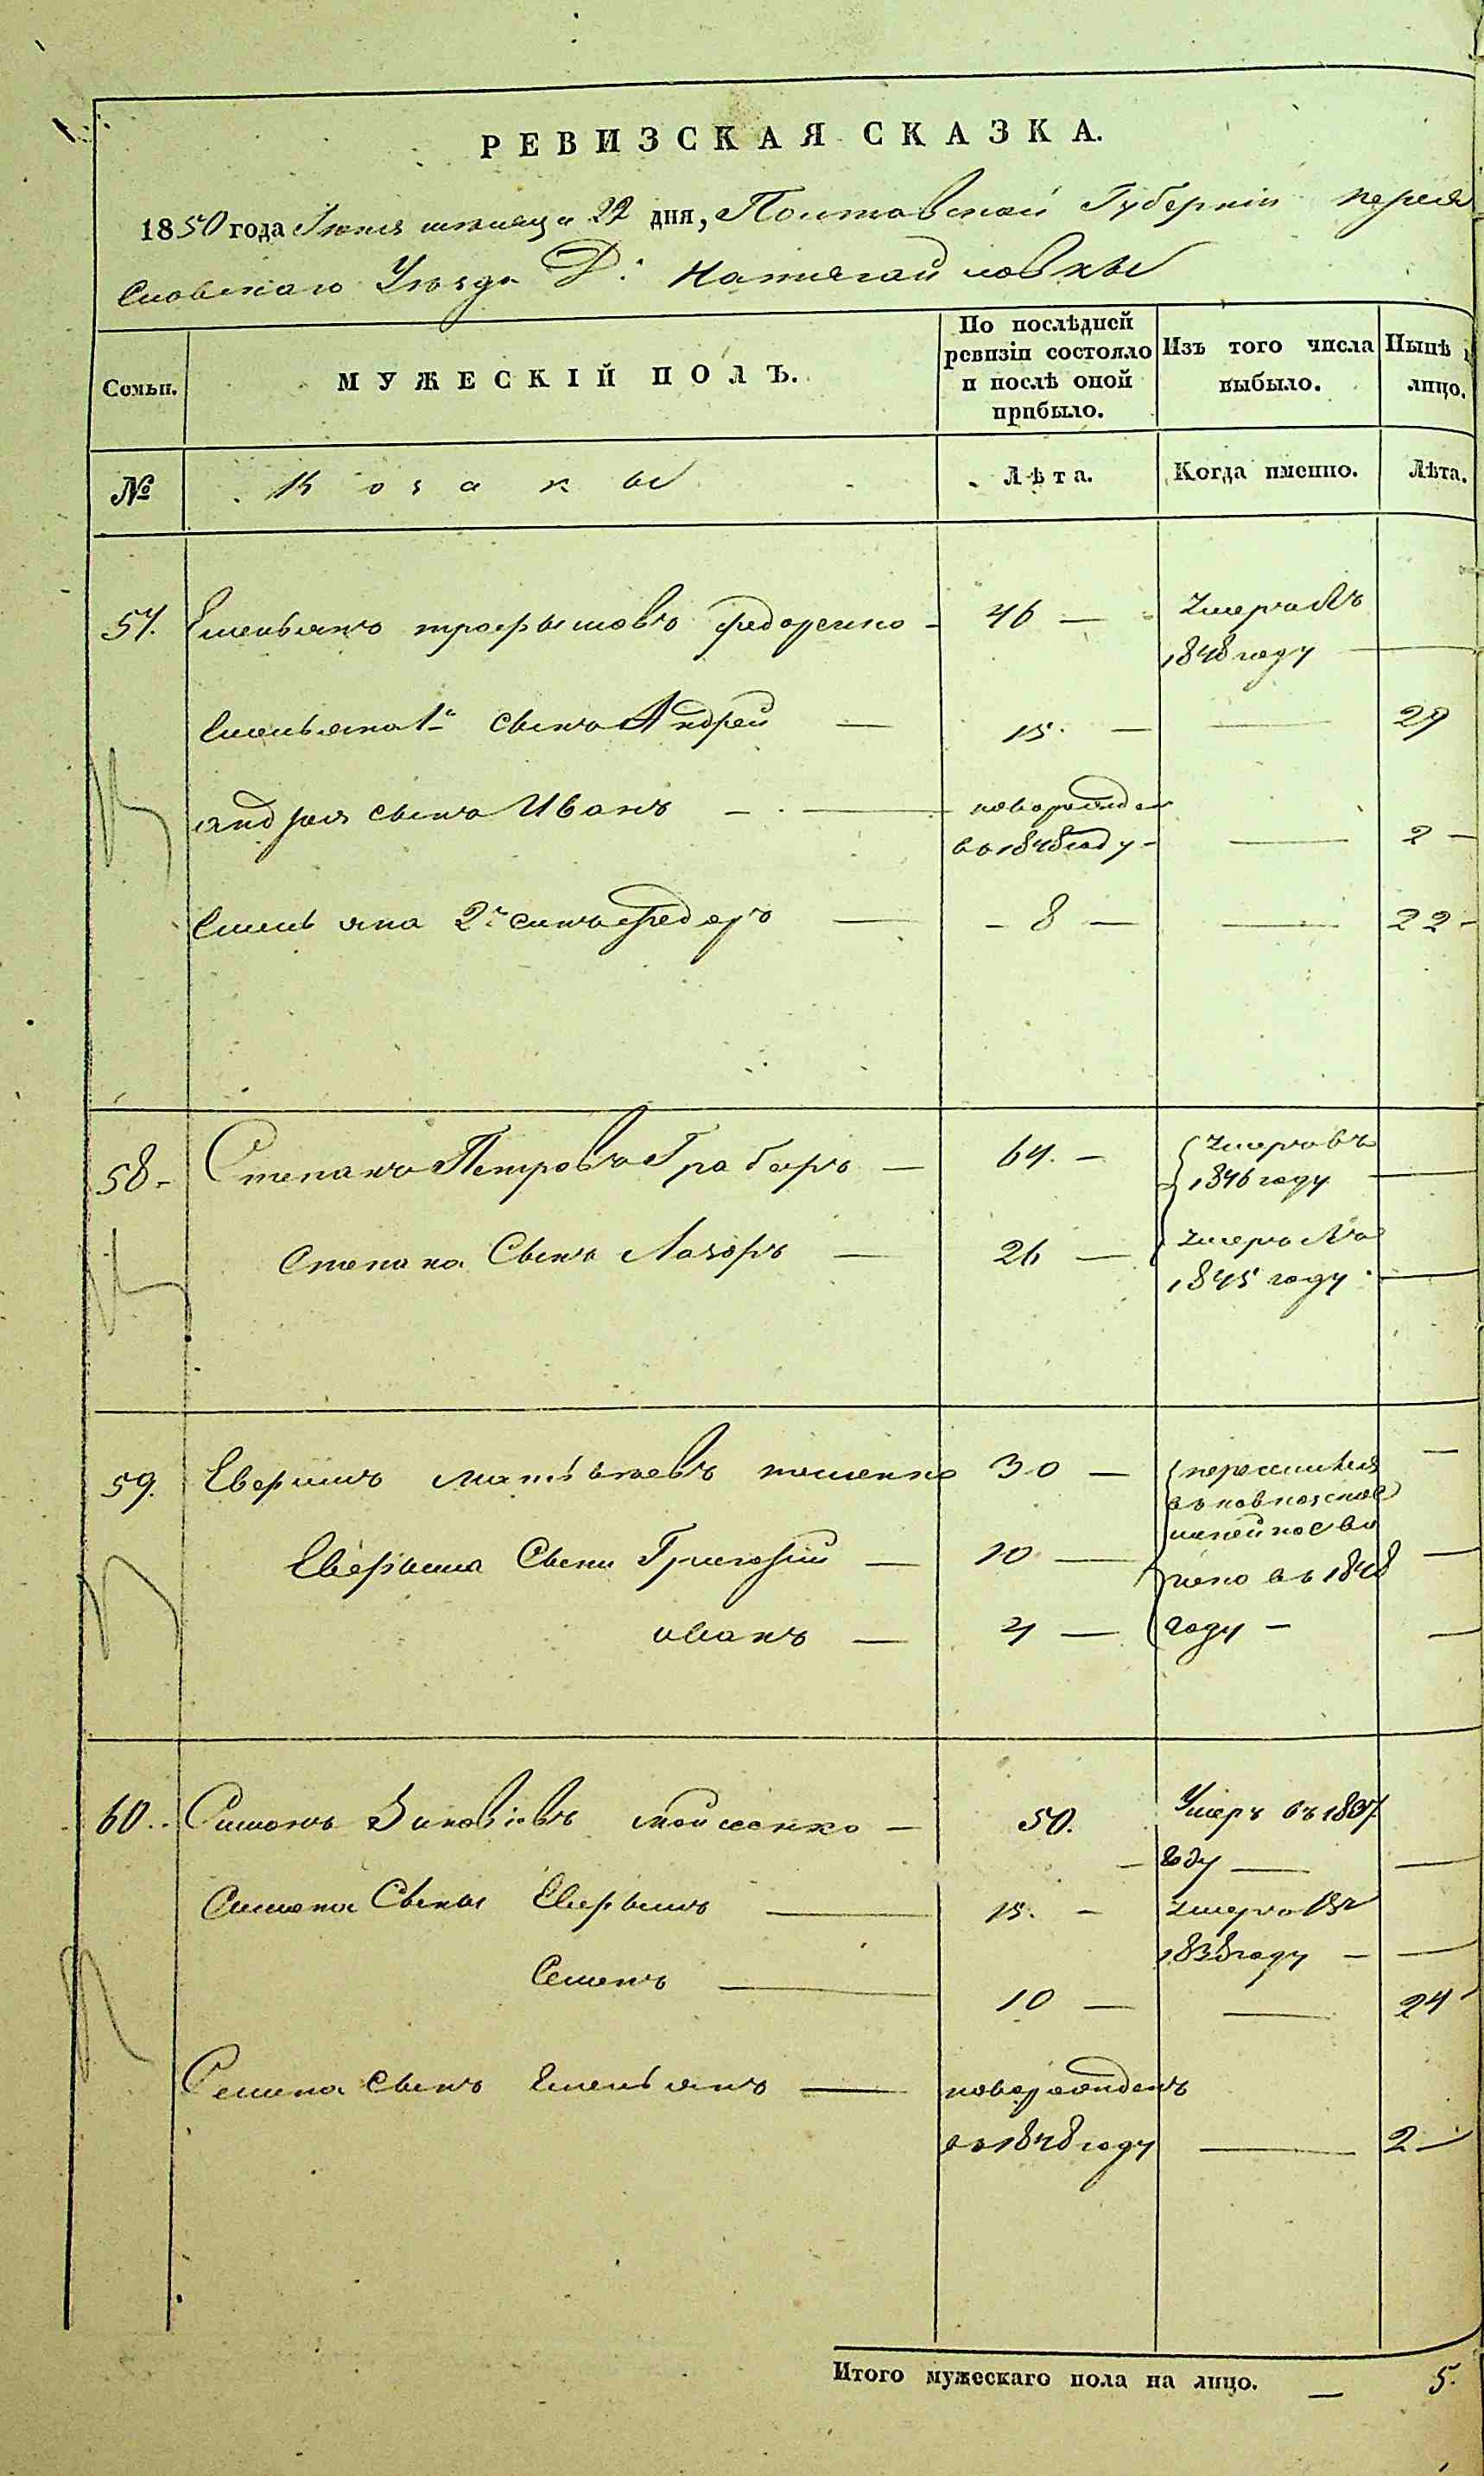 РЕВИЗСКАЯ СКАЗКА.
1850 года Июня мѣсяца 22 дня, Полтавской Губерніи Перея
славскаго Уѣзда Д:
Семьи. МУЖЕСКІЙ ПОЛЪ. По послѣдней ревизіи состояло и послѣ оной прибыло. Изъ того числа выбыло. Нынѣ лицо.
№ Козаки Лѣта. Когда именно. Лѣта.
57. Емельянъ трофымовъ федоренко - 46 — Умеръ Въ
1848 году —
Емельяна 1й сынъ Андрей — 15. — — 29
андрея сынъ Иванъ — новорожден
въ 1848 году - — 2 —
Емельяна 2й синъ федоръ — - 8 — — 22 -
58- Степанъ Петровъ Грабаръ — 64. - умеръ въ
1846 году —
Степана Сынъ Лазоръ — 26 — умеръ Въ
1845 году. —
59. Еверимъ 30 — переселился —
Еверима Сыни Григорій — 10 — въ 1848 —
иванъ — 4 — году — —
60. Симонъ Зиновіевъ моисеенко — 50. Умеръ въ 1837
— году — —
Симона Сыны Еверымъ — 15. - умеръ Въ
1838 году — —
Семенъ — 10 — — 24
Семена сынъ Емельянъ — новорожденъ
въ 1848 году — 2 —
Итого мужескаго пола на лицо. — 5.